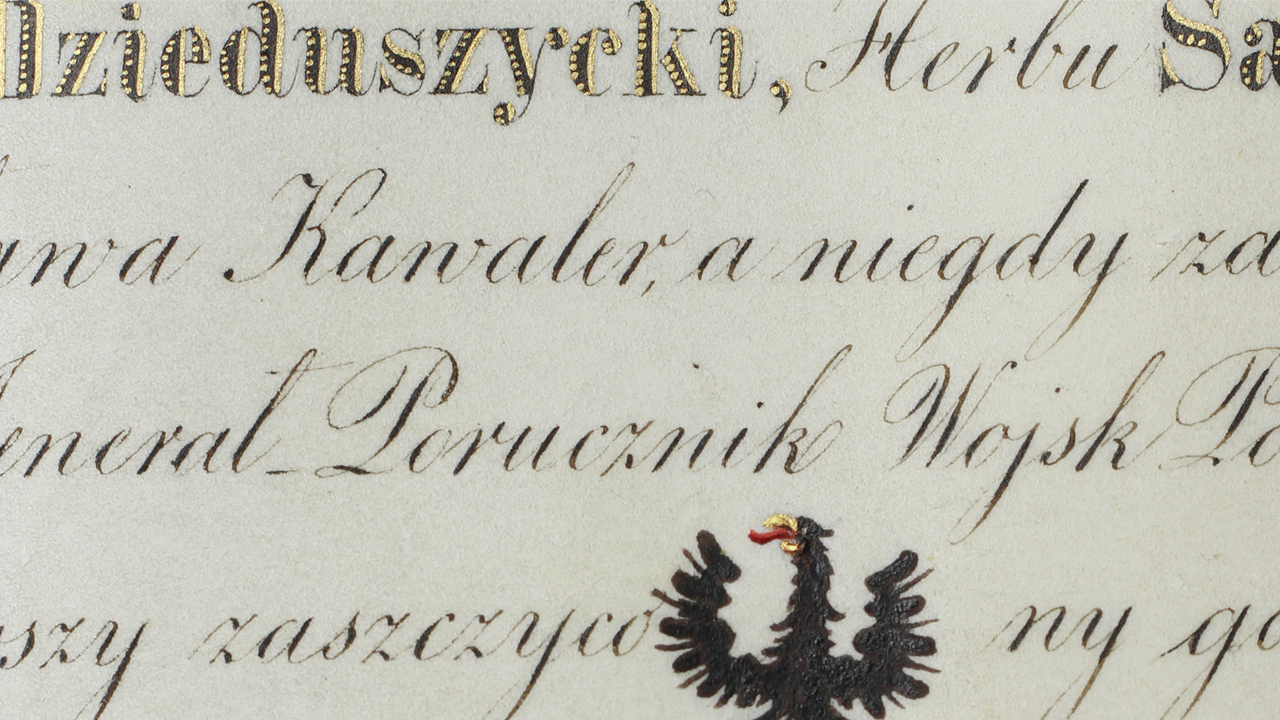 Dzieduszycki, Herbu Sa
awa Kawaler, a niegdy za
General-Porucznik Wojsk Po
szy zaszczyco ny go